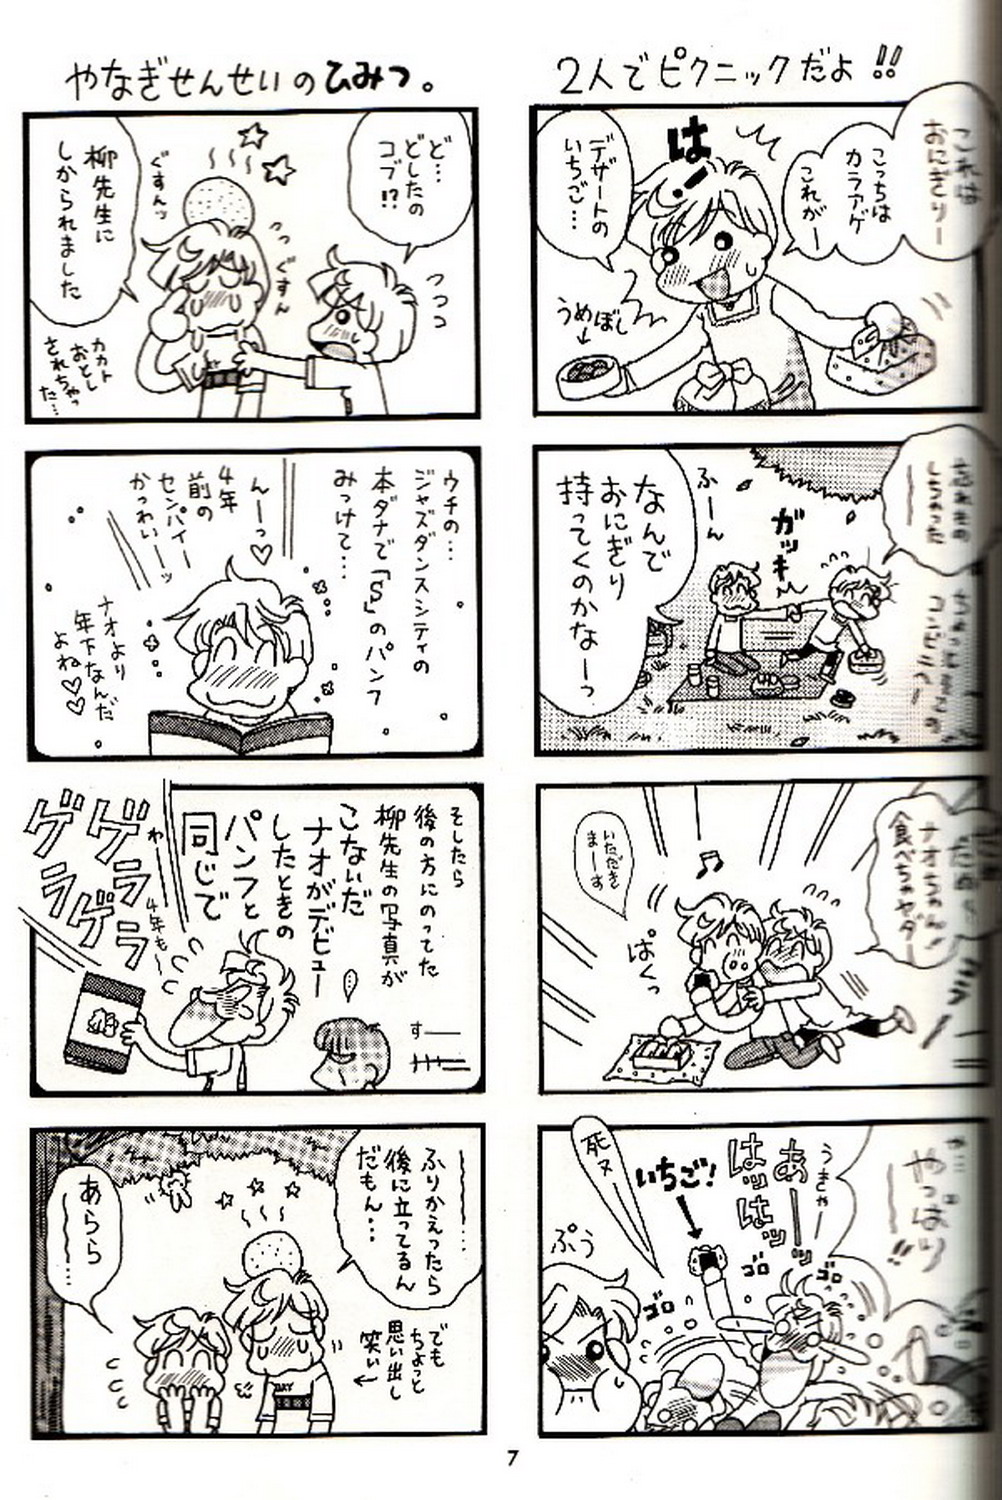 2人でピクニックだよ!!
これは
おにぎりー
こっちは
カラアゲ
これがー
は!
デザートの
いちご…
うめぼし
忘れもの
しちゃった
ーー
ガッ
ふーん
なんで
おにぎり
持ってくのかなーっ
ナオちゃん!
食べちゃヤダー
いただき
まーす
ぱくっ
やっぱりー!!
うきゃー
あーーッ
はッはッ
ゴロ
ゴロ
ゴロ
いちご!
死ヌ
ぷぅ
やなぎせんせいのひみつ。
ど…
どしたの
コブ!?
つつつ
っっ
ぐすん
ぐすんッ
柳先生に
しかられました
カカト
おとし
されちゃっ
た…
ウチの…
ジャズダンスシティの
本ダナで「S」のパンフ
みっけて…
んーっ♡
4年
前の
センパイー
かっわいーッ
ナオより
年下なんだ
よね♡♡
そしたら
後の方にのってた
柳先生の写真が
こないだ
ナオがデビュー
したときの
パンフと
同じで
…
すー
わー
4年もー
ゲラ
ゲラ
ゲラ
ゲラ
ーー…
ふりかえったら
後に立ってるん
だもん…
でも
ちょっと
思い出し
笑い
DAY
あらら
ーー…
7